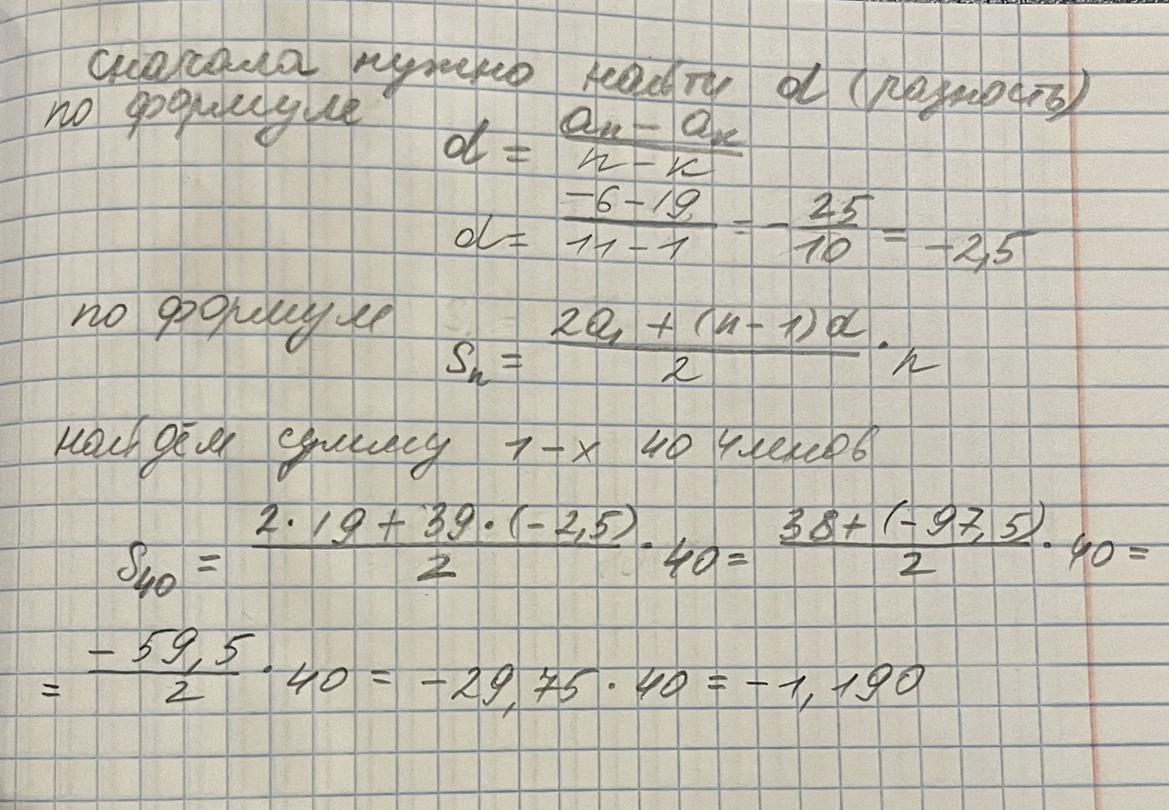 сначала нужно найти d (разность)
по формуле
d = (aₙ - aₖ)/(n - к)
d = (-6 - 19)/(11 - 1) = -25/10 = -2,5
по формуле
Sₙ = (2a₁ + (n - 1)d)/2 · n
найдём сумму 1-х 40 членов
S₄₀ = (2·19 + 39·(-2,5))/2 · 40 = (38 + (-97,5))/2 · 40 =
= (-59,5)/2 · 40 = -29,75 · 40 = -1,190